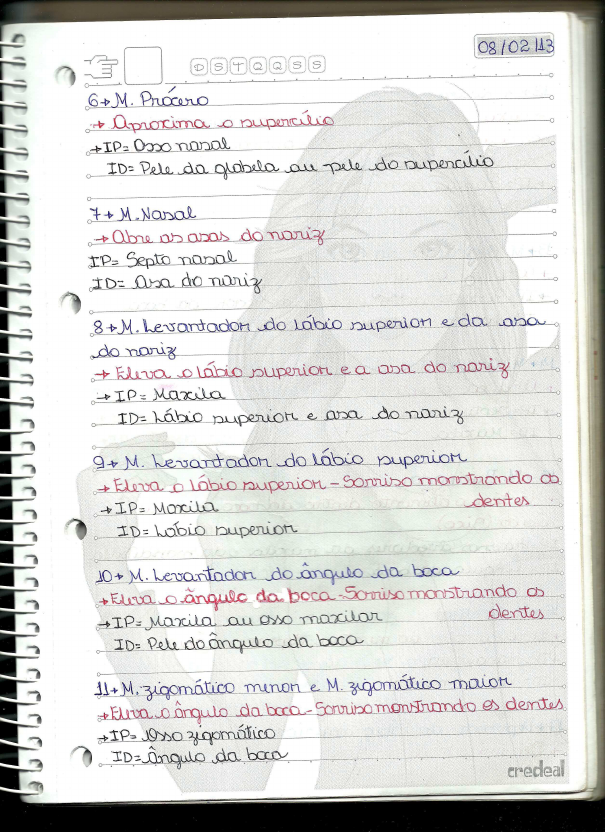 08/02/13
D S T Q Q S S
6→ M. Prócero
→ Aproxima o supercílio
→ IP= Osso nasal
ID= Pele da glabela ou pele do supercílio
7→ M. Nasal
→ Abre as asas do nariz
IP= Septo nasal
ID= Asa do nariz
8→ M. Levantador do lábio superior e da asa
do nariz
→ Eleva o lábio superior e a asa do nariz
→ IP= Maxila
ID= Lábio superior e asa do nariz
9→ M. Levantador do lábio superior
→ Eleva o lábio superior - Sorriso monstrando os
dentes
→ IP= Maxila
ID= Lábio superior
10→ M. Levantador do ângulo da boca
→ Eleva o ângulo da boca - Sorriso monstrando os
dentes
→ IP= Maxila ou osso maxilar
ID= Pele do ângulo da boca
11→ M. zigomático menor e M. zigomático maior
→ Eleva o ângulo da boca - Sorriso monstrando os dentes
→ IP= Osso zigomático
ID= Ângulo da boca
credeal